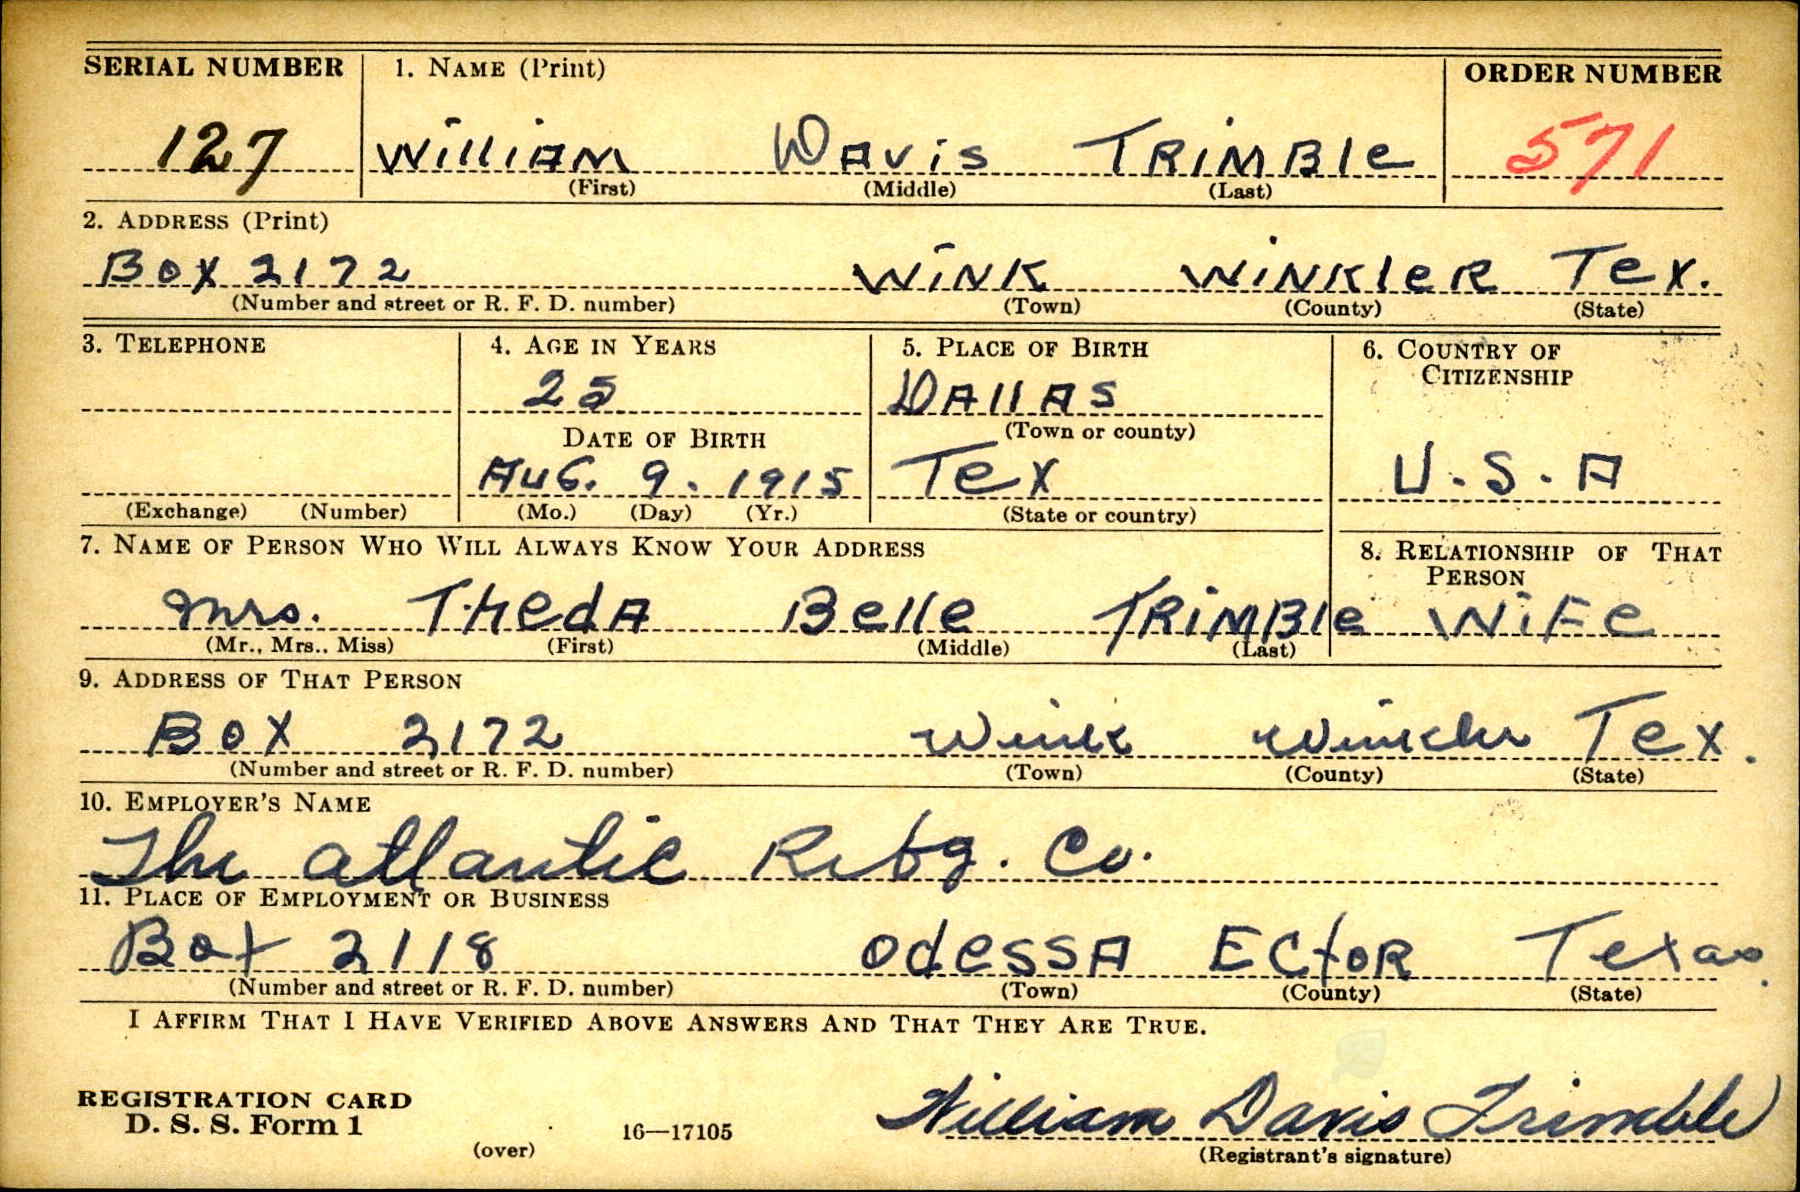 SERIAL NUMBER 1. NAME (Print) ORDER NUMBER
127 William Davis Trimble 571
(First) (Middle) (Last)
2. ADDRESS (Print)
Box 2172 Wink Winkler Tex.
(Number and street or R. F. D. number) (Town) (County) (State)
3. TELEPHONE 4. AGE IN YEARS 5. PLACE OF BIRTH 6. COUNTRY OF CITIZENSHIP
25 Dallas
DATE OF BIRTH (Town or county)
Aug. 9. 1915 Tex U.S.A
(Exchange) (Number) (Mo.) (Day) (Yr.) (State or country)
7. NAME OF PERSON WHO WILL ALWAYS KNOW YOUR ADDRESS 8. RELATIONSHIP OF THAT PERSON
Mrs. Theda Belle Trimble Wife
(Mr., Mrs., Miss) (First) (Middle) (Last)
9. ADDRESS OF THAT PERSON
Box 2172 Wink Winkler Tex.
(Number and street or R. F. D. number) (Town) (County) (State)
10. EMPLOYER'S NAME
The Atlantic Refg. Co.
11. PLACE OF EMPLOYMENT OR BUSINESS
Box 2118 Odessa Ector Texas.
(Number and street or R. F. D. number) (Town) (County) (State)
I AFFIRM THAT I HAVE VERIFIED ABOVE ANSWERS AND THAT THEY ARE TRUE.
REGISTRATION CARD
D. S. S. Form 1 William Davis Trimble
(over) 16—17105 (Registrant's signature)